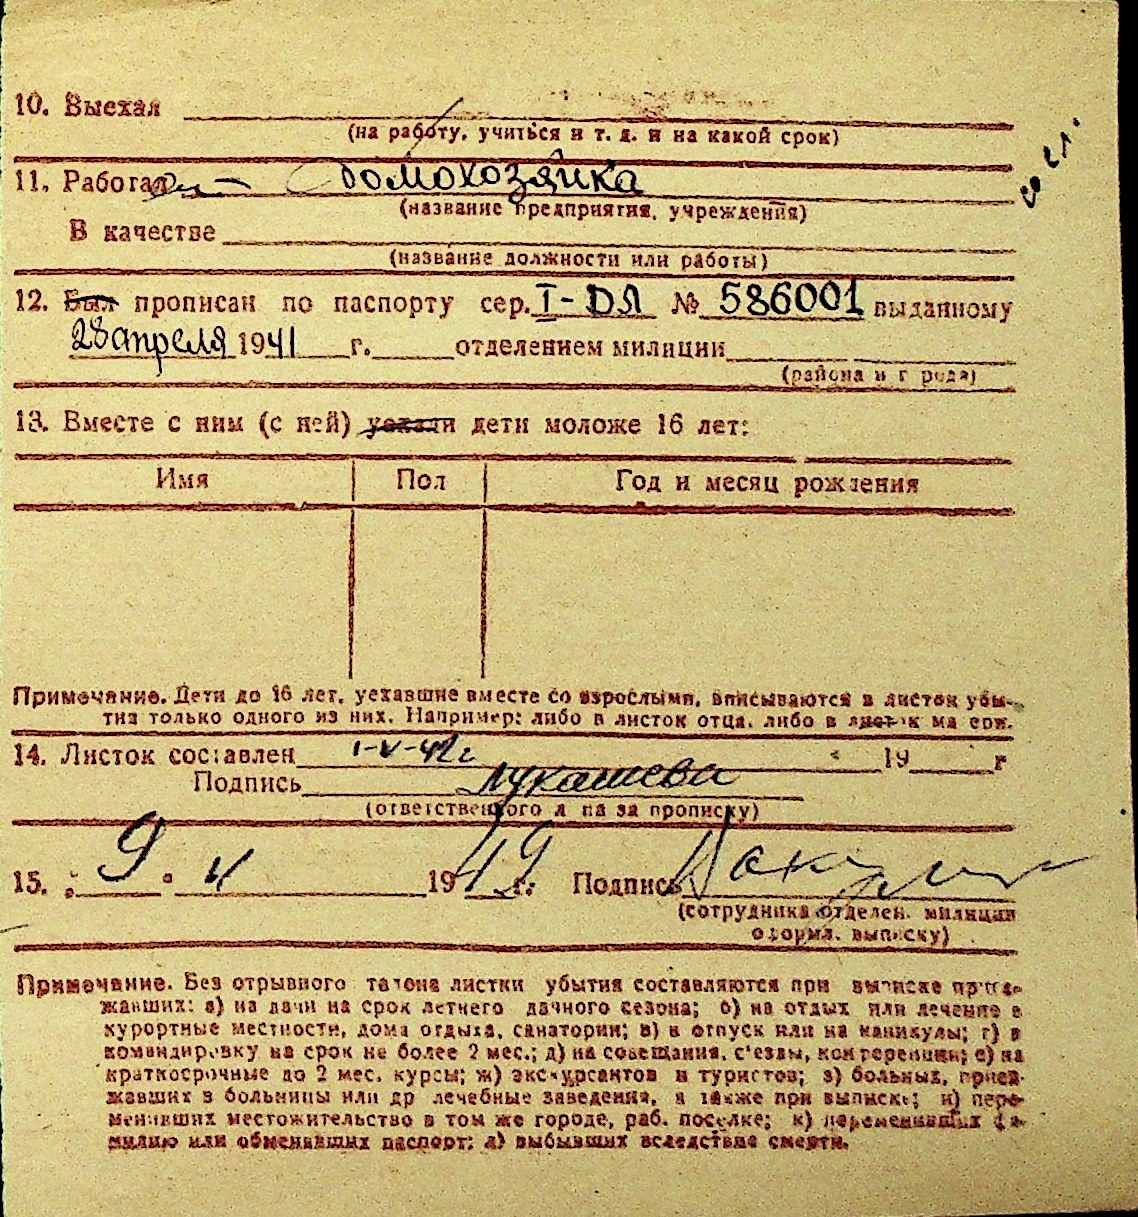 10. Выехал
(на работу, учиться и т. д. и на какой срок)
11. Работает домохозяйка
(название предприятия, учреждения)
В качестве
(название должности или работы)
12. Был прописан по паспорту сер. I-ДЛ № 586001 выданному
28 апреля 1941 г. отделением милиции
(района и города)
13. Вместе с ним (с ней) уехали дети моложе 16 лет:
Имя Пол Год и месяц рождения
Примечание. Дети до 16 лет, уехавшие вместе со взрослыми, вписываются в листок убы-
тия только одного из них. Например: либо в листок отца, либо в листок матери.
14. Листок составлен 1-V-42 г 19 г
Подпись Лукашева
(ответственного лица за прописку)
15. 9 19 49 г. Подпись
(сотрудника отделен. милиции
оформл. выписку)
Примечание. Без отрывного талона листки убытия составляются при выписке приез-
жавших: а) на дачи на срок летнего дачного сезона; б) на отдых или лечение в
курортные местности, дома отдыха, санатории; в) в отпуск или на каникулы; г) в
командировку на срок не более 2 мес.; д) на совещания, с'езды, конференции; е) на
краткосрочные до 2 мес. курсы; ж) экскурсантов и туристов; з) больных, приез-
жавших в больницы или др лечебные заведения, а также при выписке; и) пере-
менивших местожительство в том же городе, раб. поселке; к) переменивших фа-
милию или обменявших паспорт; л) выбывших вследствие смерти.